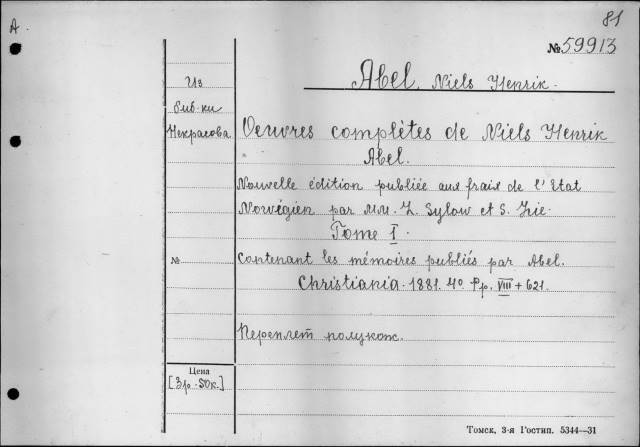 А.
81
№ 59913
Abel. Niels Henrik.
Из
биб-ки
Некрасова
Oeuvres complètes de Niels Henrik
Abel.
Nouvelle édition publiée aux frais de l'Etat
Norvégien par MM. L. Sylow et S. Lie.
Tome I.
№
Contenant les mémoires publiés par Abel.
Christiania. 1881. 4o. Pp. VIII + 621.
Переплет полукож.
Цена
[3р. 50к.]
Томск, 3-я Гостип. 5344—31